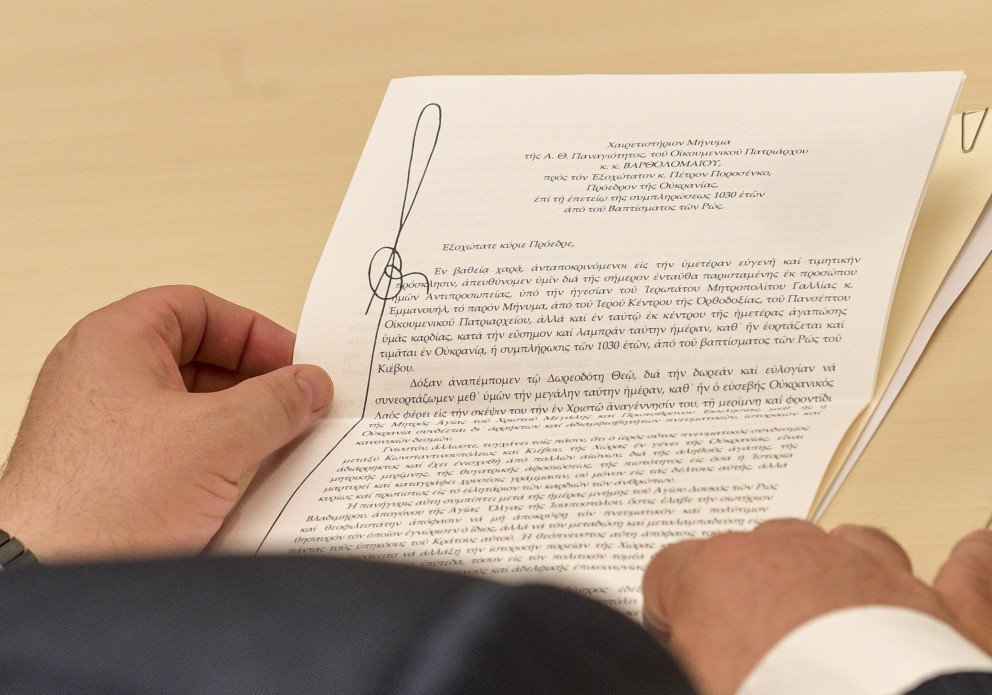 Χαιρετιστήριον Μήνυμα
τῆς Α. Θ. Παναγιότητος, τοῦ Οἰκουμενικοῦ Πατριάρχου
κ. κ. ΒΑΡΘΟΛΟΜΑΙΟΥ,
πρὸς τὸν Ἐξοχώτατον κ. Πέτρον Ποροσένκο,
Πρόεδρον τῆς Οὐκρανίας,
ἐπὶ τῇ ἐπετείῳ τῆς συμπληρώσεως 1030 ἐτῶν
ἀπὸ τοῦ Βαπτίσματος τῶν Ρώς.
Ἐξοχώτατε κύριε Πρόεδρε,
Ἐν βαθείᾳ χαρᾷ, ἀνταποκρινόμενοι εἰς τὴν ὑμετέραν εὐγενῆ καὶ τιμητικήν
πρόσκλησιν, ἀπευθύνομεν ὑμῖν διὰ τῆς σήμερον ἐνταῦθα παρισταμένης ἐκ προσώπου
ἡμῶν Ἀντιπροσωπείας, ὑπὸ τὴν ἡγεσίαν τοῦ Ἱερωτάτου Μητροπολίτου Γαλλίας κ.
Ἐμμανουήλ, τὸ παρὸν Μήνυμα, ἀπὸ τοῦ Ἱεροῦ Κέντρου τῆς Ὀρθοδοξίας, τοῦ Πανσέπτου
Οἰκουμενικοῦ Πατριαρχείου, ἀλλὰ καὶ ἐν ταὐτῷ ἐκ κέντρου τῆς ἡμετέρας ἀγαπώσης
ὑμᾶς καρδίας, κατὰ τὴν εὔσημον καὶ λαμπρὰν ταύτην ἡμέραν, καθ᾽ ἣν ἑορτάζεται καὶ
τιμᾶται ἐν Οὐκρανίᾳ, ἡ συμπλήρωσις τῶν 1030 ἐτῶν, ἀπὸ τοῦ βαπτίσματος τῶν Ρὼς τοῦ
Κιέβου.
Δόξαν ἀναπέμπομεν τῷ Δωρεοδότῃ Θεῷ, διὰ τὴν δωρεὰν καὶ εὐλογίαν νὰ
συνεορτάζωμεν μεθ᾽ ὑμῶν τὴν μεγάλην ταύτην ἡμέραν, καθ᾽ ἣν ὁ εὐσεβὴς Οὐκρανικὸς
Λαὸς φέρει εἰς τὴν σκέψιν του τὴν ἐν Χριστῷ ἀναγέννησίν του, τῇ μερίμνῃ καὶ φροντίδι
τῆς Μητρὸς Ἁγίας τοῦ Χριστοῦ Μεγάλης καὶ Πρωτοθρόνου Ἐκκλησίας, μεθ᾽ ἧς ἡ
Οὐκρανία συνδέεται δι᾽ ἀρρήκτων καὶ ἀδιαμφισβητήτων πνευματικῶν, ἱστορικῶν καὶ
κανονικῶν δεσμῶν.
Γνωστόν, ἄλλωστε, τυγχάνει τοῖς πᾶσιν, ὅτι ὁ ἱερὸς οὗτος πνευματικὸς σύνδεσμος
μεταξὺ Κωνσταντινουπόλεως καὶ Κιέβου, τῆς Χώρας ἐν γένει τῆς Οὐκρανίας, εἶναι
ἀδιάρρηκτος καὶ ἔχει ἐνισχυθῆ ἀπὸ πολλῶν αἰώνων, διὰ τῆς ἀληθοῦς ἀγάπης, τῆς
μητρικῆς μερίμνης, τῆς θυγατρικῆς ἀφοσιώσεως, τῆς πιστότητος εἰς ὅσα ἡ Ἱστορία
μαρτυρεῖ καὶ καταγράφει χρυσέοις γράμμασιν, οὐ μόνον εἰς τὰς δέλτους αὐτῆς, ἀλλὰ
κυρίως καὶ πρωτίστως εἰς τὸ εἰλητάριον τῶν καρδιῶν τῶν ἀνθρώπων.
Ἡ πανήγυρις αὕτη συμπίπτει μετὰ τῆς ἡμέρας μνήμης τοῦ Ἁγίου Δουκὸς τῶν Ρὼς
Βλαδιμήρου, ἀπογόνου τῆς Ἁγίας Ὄλγας τῆς Ἰσαποστόλου, ὅστις ἔλαβε τὴν σωτήριον
καὶ θεοφιλεστάτην ἀπόφασιν νὰ μὴ ἀποκρύψῃ τὸν πνευματικὸν καὶ πολύτιμον
θησαυρὸν τὸν ὁποῖον ἐγνώρισεν ὁ ἴδιος, ἀλλὰ νὰ τὸν μεταδώσῃ καὶ μεταλαμπαδεύσῃ εἰς
πάντας τοὺς ὑπηκόους τοῦ Κράτους αὐτοῦ. Ἡ θεόπνευστος αὕτη ἀπόφασις τοῦ
νὰ ἀλλάξῃ τὴν ἱστορικὴν πορείαν τῆς Χώρας
ἐπίπεδα, τόσον εἰς τὸν πολιτικὸν τομέα
καὶ ἀδελφικῆς ἐπικοινωνίας